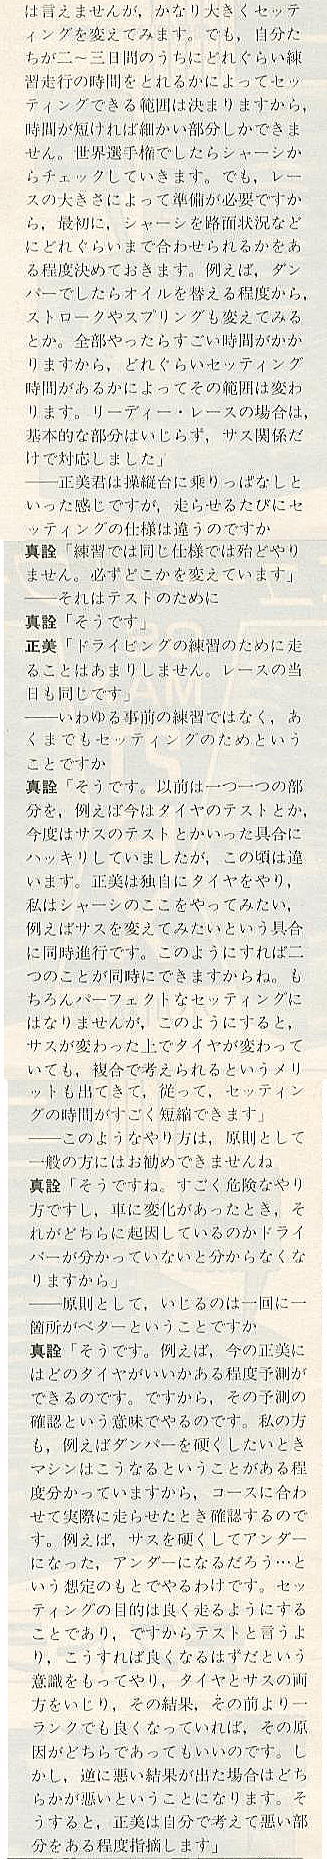 は言えませんが，かなり大きくセッテ
ィングを変えてみます。でも，自分た
ちが二〜三日間のうちにどれぐらい練
習走行の時間をとれるかによってセッ
ティングできる範囲は決まりますから，
時間が短ければ細かい部分しかできま
せん。世界選手権でしたらシャーシか
らチェックしていきます。でも，レー
スの大きさによって準備が必要ですか
ら，最初に，シャーシを路面状況など
にどれぐらいまで合わせられるかをあ
る程度決めておきます。例えば，ダン
パーでしたらオイルを替える程度から，
ストロークやスプリングも変えてみる
とか。全部やったらすごい時間がかか
りますから，どれぐらいセッティング
時間があるかによってその範囲は変わ
ります。リーディー・レースの場合は，
基本的な部分はいじらず，サス関係だ
けで対応しました」
――正美君は操縦台に乗りっぱなしと
いった感じですが，走らせるたびにセ
ッティングの仕様は違うのですか
真詮「練習では同じ仕様では殆どやり
ません。必ずどこかを変えています」
――それはテストのために
真詮「そうです」
正美「ドライビングの練習のために走
ることはあまりしません。レースの当
日も同じです」
――いわゆる事前の練習ではなく，あ
くまでもセッティングのためという
ことですか
真詮「そうです。以前は一つ一つの部
分を，例えば今はタイヤのテストとか，
今度はサスのテストとかいった具合に
ハッキリしていましたが，この頃は違
います。正美は独自にタイヤをやり，
私はシャーシのここをやってみたい，
例えばサスを変えてみたいという具合
に同時進行です。このようにすれば二
つのことが同時にできますからね。も
ちろんパーフェクトなセッティングに
はなりませんが，このようにすると，
サスが変わった上でタイヤが変わって
いても，複合で考えられるというメリ
ットも出てきて，従って，セッティン
グの時間がすごく短縮できます」
――このようなやり方は，原則として
一般の方にはお勧めできませんね
真詮「そうですね。すごく危険なやり
方ですし，車に変化があったとき，そ
れがどちらに起因しているのかドライ
バーが分かっていないと分からなくな
りますから」
――原則として，いじるのは一回に一
箇所がベターということですか
真詮「そうです。例えば，今の正美に
はどのタイヤがいいかある程度予測が
できるのです。ですから，その予測の
確認という意味でやるのです。私の方
も，例えばダンパーを硬くしたいとき
マシンはこうなるということがある程
度分かっていますから，コースに合わ
せて実際に走らせたとき確認するので
す。例えば，サスを硬くしてアンダー
になった，アンダーになるだろう…と
いう想定のもとでやるわけです。セッ
ティングの目的は良く走るようにする
ことであり，ですからテストと言うよ
り，こうすれば良くなるはずだという
意識をもってやり，タイヤとサスの両
方をいじり，その結果，その前より一
ランクでも良くなっていれば，その原
因がどちらであってもいいのです。し
かし，逆に悪い結果が出た場合はどち
らかが悪いということになります。そ
うすると，正美は自分で考えて悪い部
分をある程度指摘します」